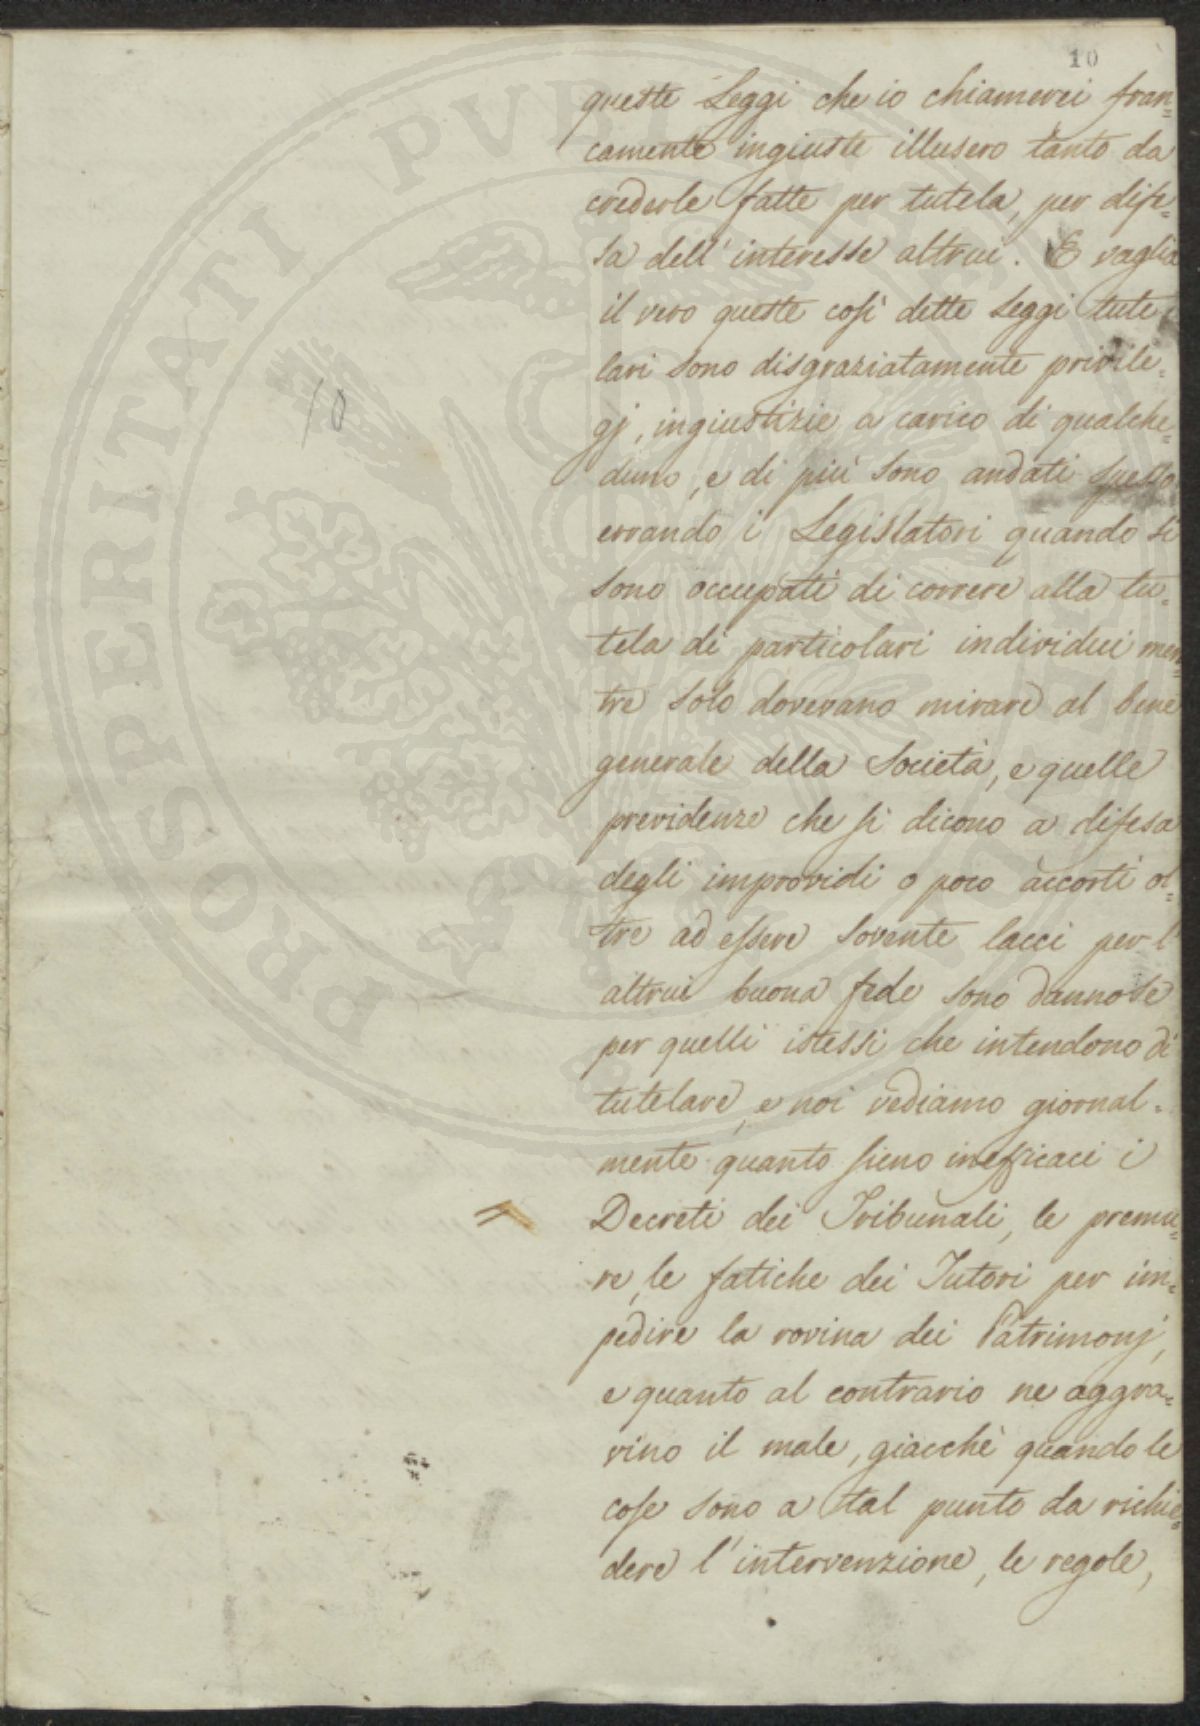 10
queste Leggi che io chiamerei fran=
camente ingiuste illusero tanto da
crederle fatte per tutela, per dife=
sa dell'interesse altrui. E vaglia
il vero queste così dette Leggi tute
lari sono disgraziatamente privile=
gj, ingiustizie a carico di qualche=
duno, e di più sono andati spesso
errando i Legislatori quando si
sono occupati di correre alla tu=
tela di particolari individui men=
tre solo dovevano mirare al bene
generale della Società, e quelle
previdenze che si dicono a difesa
degli improvidi o poco accorti ol=
tre ad essere sovente lacci per l'
altrui buona fede sono dannose
per quelli istessi che intendono di
tutelare, e noi vediamo giornal=
mente quanto sieno inefficaci i
Decreti dei Tribunali, le premu=
re, le fatiche dei Tutori per im=
pedire la rovina dei Patrimonj,
e quanto al contrario ne aggra=
vino il male, giacchè quando le
cose sono a tal punto da richie=
dere l'intervenzione, le regole,
10
=
PROSPERITATI PVBLICAE